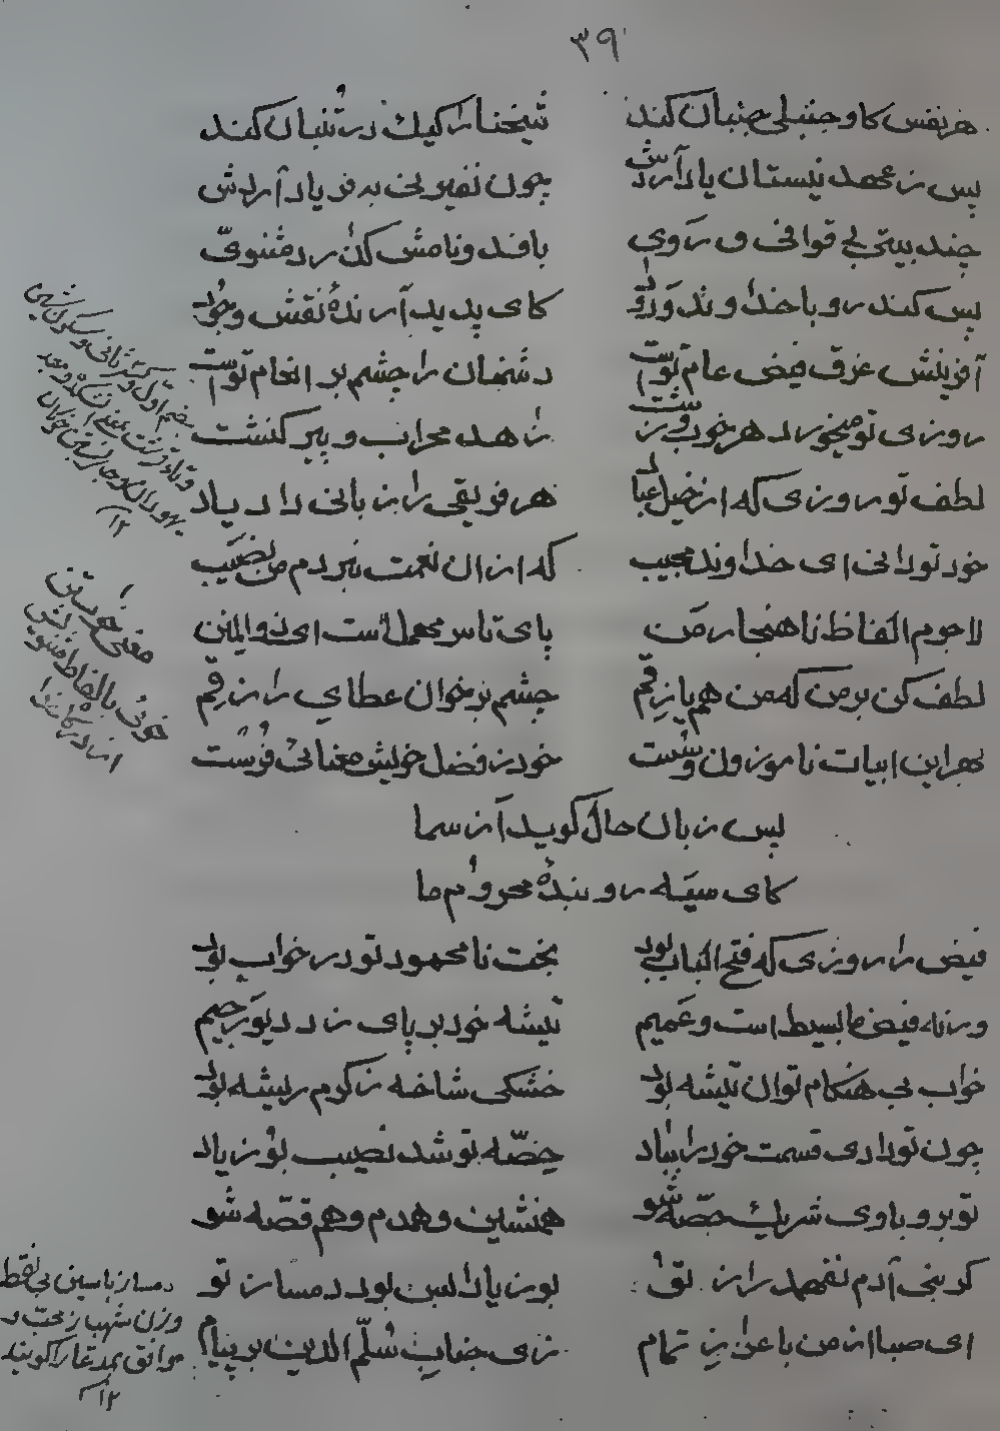 ٣٩
هر نفس کاو جنبلی جنبان کند شیخنا را کیک در تنبان کند
پس ز عهد نیستان یاد آردش چون نفیر نی به فریاد آردش
چند بیتی بی قوافی و روی بافد و نامش کند رد مثنوی
پس کند رو با خداوند ودود کای پدید آرندهٔ نقش وجود
آفرینش غرق فیض عام توست دشمنان را چشم بر انعام توست
روزی تو میخورد هر خوب و زشت زاهد محراب و پیر کنشت
لطف تو روزی که از خیل عباد هر فریقی را زبانی داد یاد
خود تو دانی ای خداوند مجیب که از ان نعمت نبردم من نصیب
لاجرم الفاظ ناهنجار من پای تا سر مهمل است ای ذو المنن
لطف کن بر من که من هم یا زقم چشم بر خوان عطای را زقم
بهر این ابیات ناموزون و سست خود ز فضل خویش معنائی فرست
پس زبان حال گوید آن سما
کای سیه رو بندهٔ محروم ما
فیض را روزی که فتح الباب بود بخت نامحمود تو در خواب بود
ورنه فیض ما بسیط است و عمیم تیشه خود بر پای زد دیو رجیم
خواب بی هنگام توان تیشه بود خشکی شاخه ز کرم ریشه بود
چون تو دادی قسمت خود را بباد حصّه تو شد نصیب بوزیاد
تو برو با وی شریک حصّه شو همنشین و همدم و هم قصّه شو
کر بنی آدم نفهمد راز تو بوزیاد بس بود دمساز تو
ای صبا از من با عزاز تمام زی جناب سُلّم الدین بر پیام
بضم اول و
۱۲
معنی خواستن
خوئی
دمساز باسین بی نقطه
وزن شهباز محبّ و
موافق مدعا را گویند
۱۲